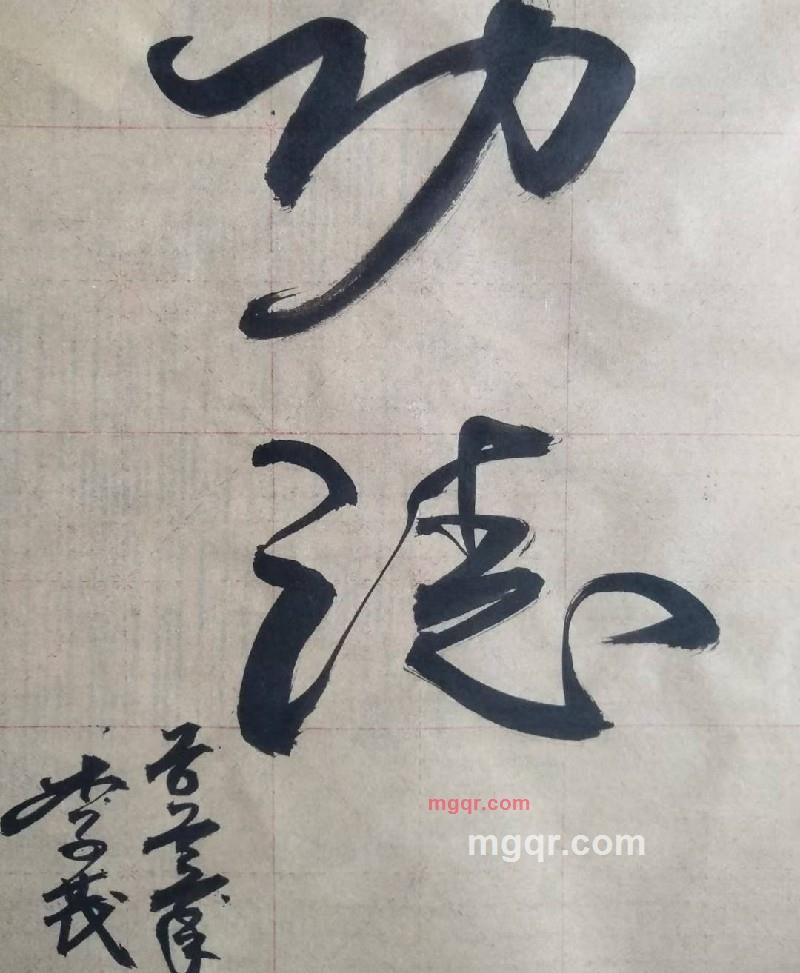 功德
李茂
mgqr.com
mgqr.com